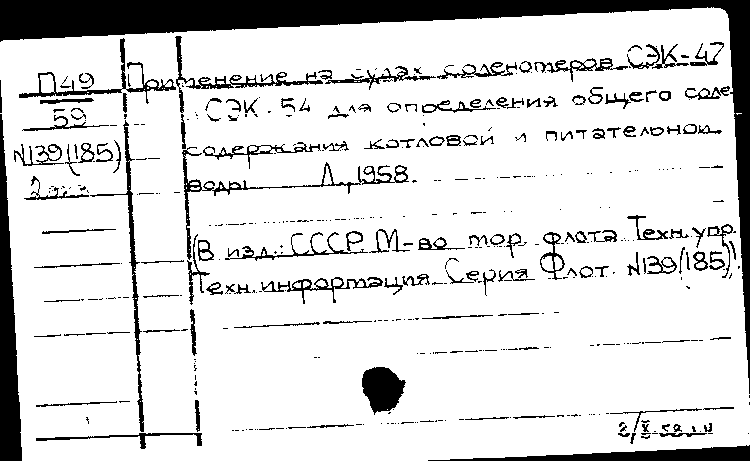 П49
59
N139(185)
2 экз
Применение на судах соленомеров СЭК-47
СЭК-54 для определения общего соле
содержания котловой и питательной
воды Л., 1958.
(В изд.: СССР. М-во мор. флота Техн. упр.
Техн. информация. Серия Флот. N139(185))
2/X-58